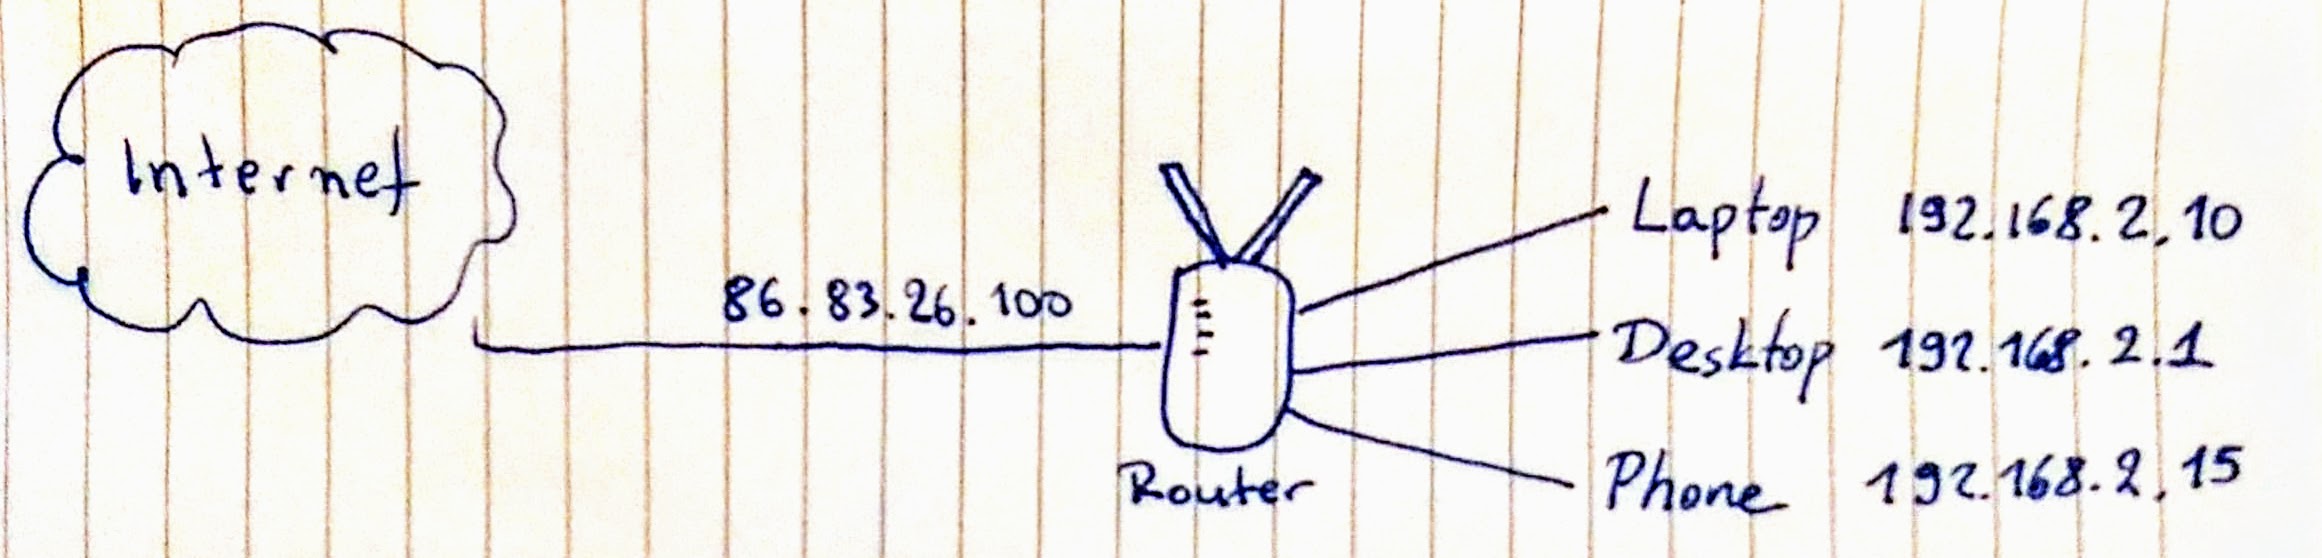 Internet
86.83.26.100
Router
Laptop 192.168.2.10
Desktop 192.168.2.1
Phone 192.168.2.15